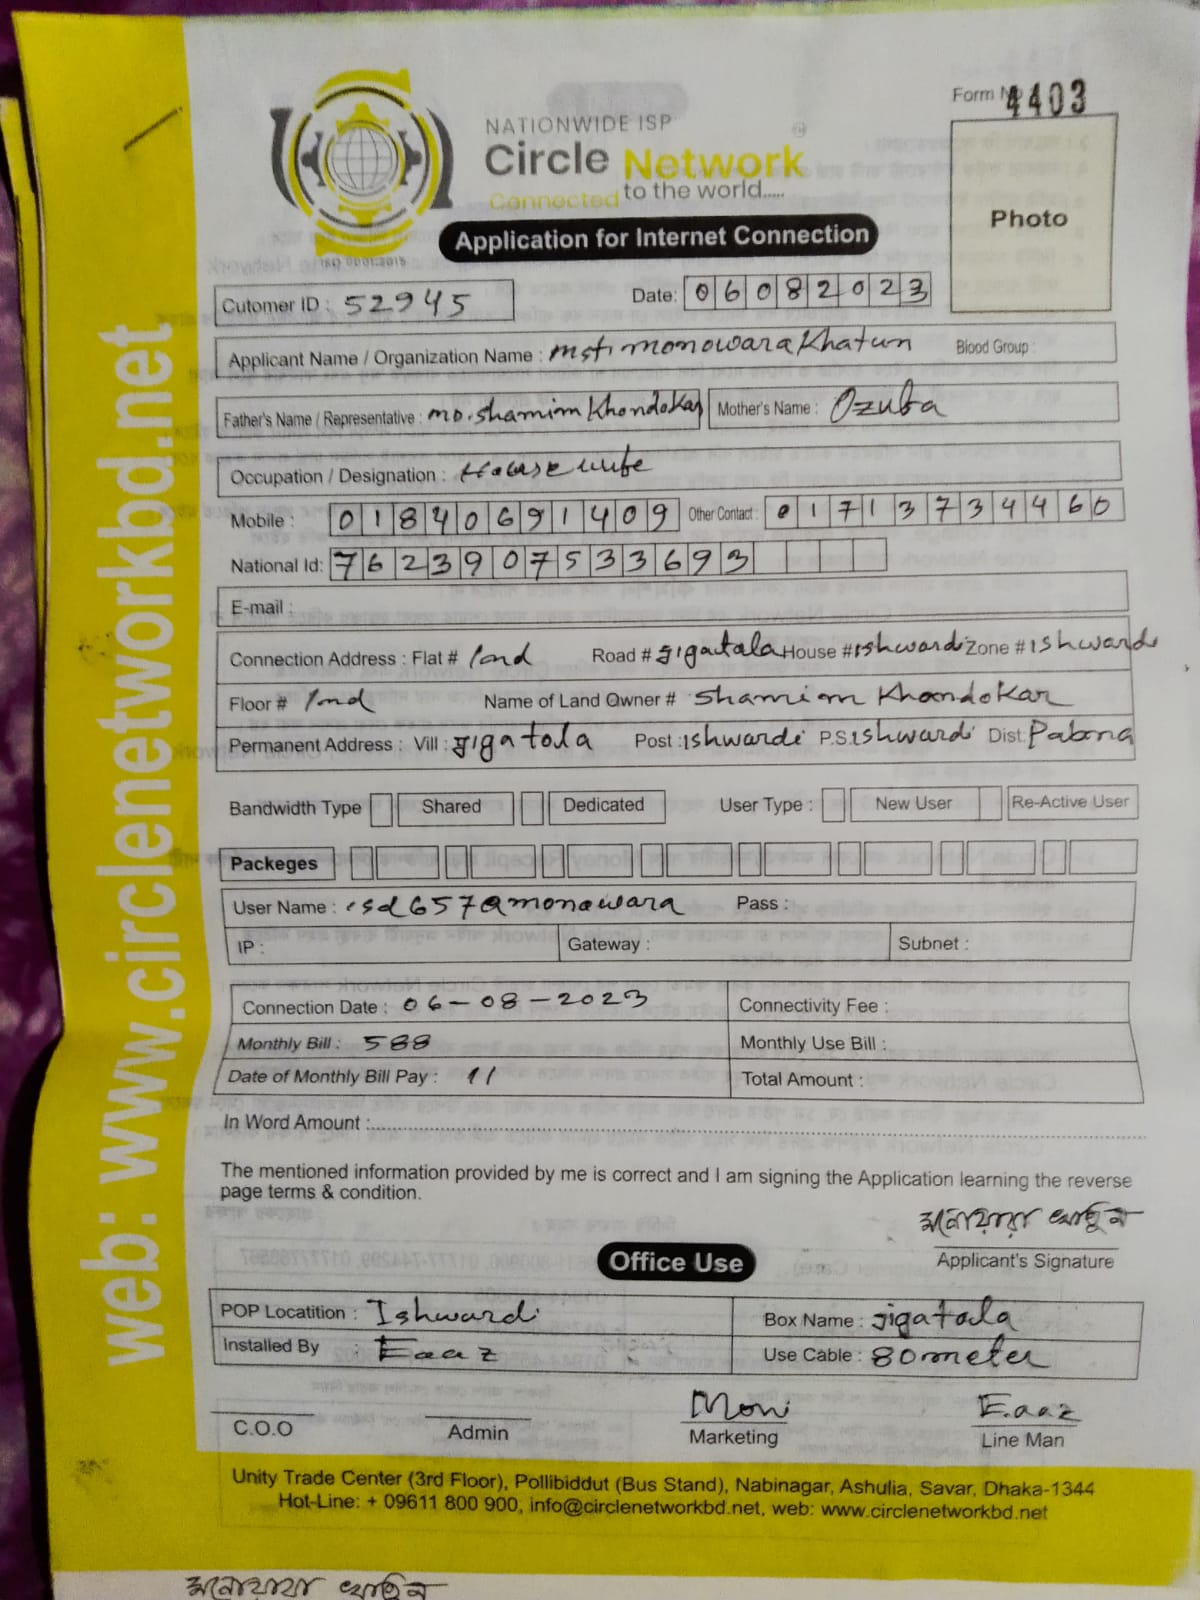 Form No 4403
NATIONWIDE ISP
Circle Network
Connected to the world.....
ISO 9001:2015
Application for Internet Connection
Photo
Cutomer ID : 52945 Date: 06082023
Applicant Name / Organization Name : mst monowara Khatun Blood Group :
Father's Name / Representative : mo. shamim Khondokar Mother's Name : Ozuba
Occupation / Designation : House wife
Mobile : 01840691409 Other Contact : 01713734460
National Id: 7623907533693
E-mail :
Connection Address : Flat # 2nd Road # Jigatala House # ishwardi Zone # Ishwardi
Floor # 2nd Name of Land Owner # Shamim Khondokar
Permanent Address : Vill : Jigatola Post : ishwardi P.S: ishwardi Dist: Pabna
Bandwidth Type Shared Dedicated User Type : New User Re-Active User
Packeges
User Name : isd657@monowara Pass :
IP : Gateway : Subnet :
Connection Date : 06-08-2023 Connectivity Fee :
Monthly Bill : 588 Monthly Use Bill :
Date of Monthly Bill Pay : 11 Total Amount :
In Word Amount :
The mentioned information provided by me is correct and I am signing the Application learning the reverse
page terms & condition.
মনোয়ারা খাতুন
Applicant's Signature
Office Use
POP Locatition : Ishwardi Box Name : Jigatola
Installed By : Eaaz Use Cable : 80 meter
Moni E.aaz
C.O.O Admin Marketing Line Man
Unity Trade Center (3rd Floor), Pollibiddut (Bus Stand), Nabinagar, Ashulia, Savar, Dhaka-1344
Hot-Line: + 09611 800 900, info@circlenetworkbd.net, web: www.circlenetworkbd.net
web: www.circlenetworkbd.net
মনোয়ারা খাতুন